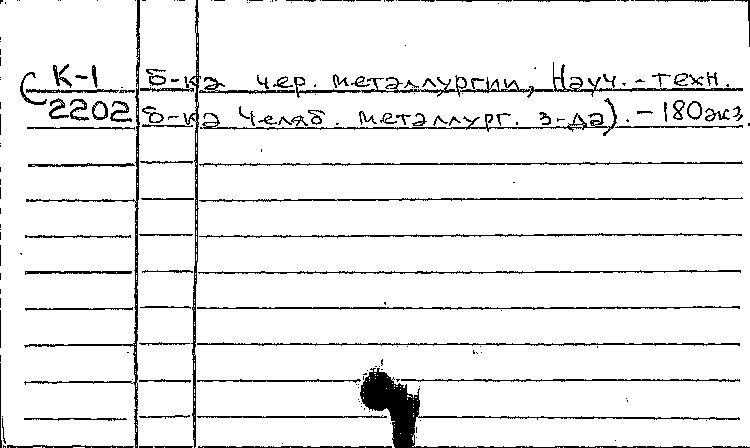 К-1 б-ка чер. металлургии, Науч.-техн.
2202 б-ка Челяб. металлург. з-да). - 180экз.